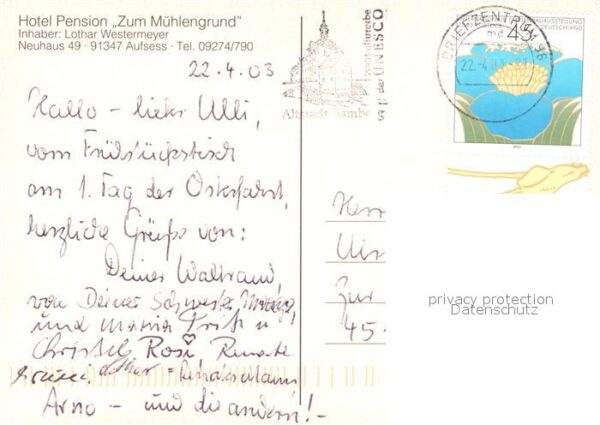 Hotel Pension „Zum Mühlengrund"
Inhaber: Lothar Westermeyer
Neuhaus 49 · 91347 Aufsess · Tel. 09274/790
22.4.03
Hallo – lieber Ulli,
vom Frühstückstisch
am 1. Tag der Osterfahrt,
herzliche Grüße von:
Deiner Waltraud,
von Deiner Schwester
und Maria Fritz u
Christel Rosi, Renate
Arno – und die andern! –
UNESCO
Altstadt Bamberg
BRIEFZENTRUM 96
md
22.-4.03
45
DEUTSCHLAND
Herr
Zur
45
privacy protection
Datenschutz